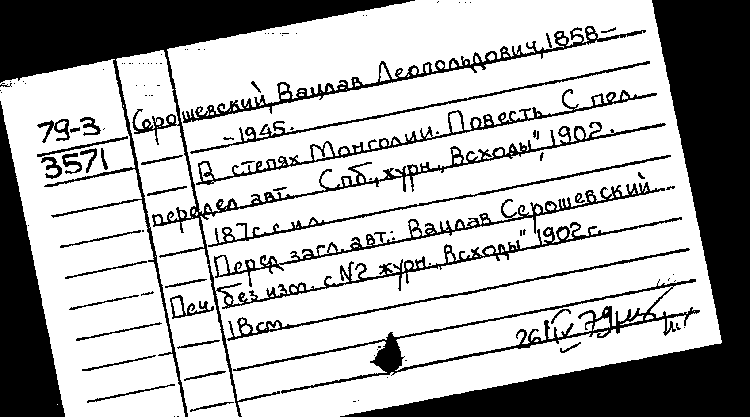 79-3
3571
Серошевский, Вацлав Леопольдович, 1858–
–1945.
В степях Монголии. Повесть С пол.
передел авт. Спб, журн. „Всходы", 1902.
187с. с ил.
Перед загл. авт.: Вацлав Серошевский
Печ. без изм. с №2 журн. „Всходы" 1902 г.
18см.
26/IV 79